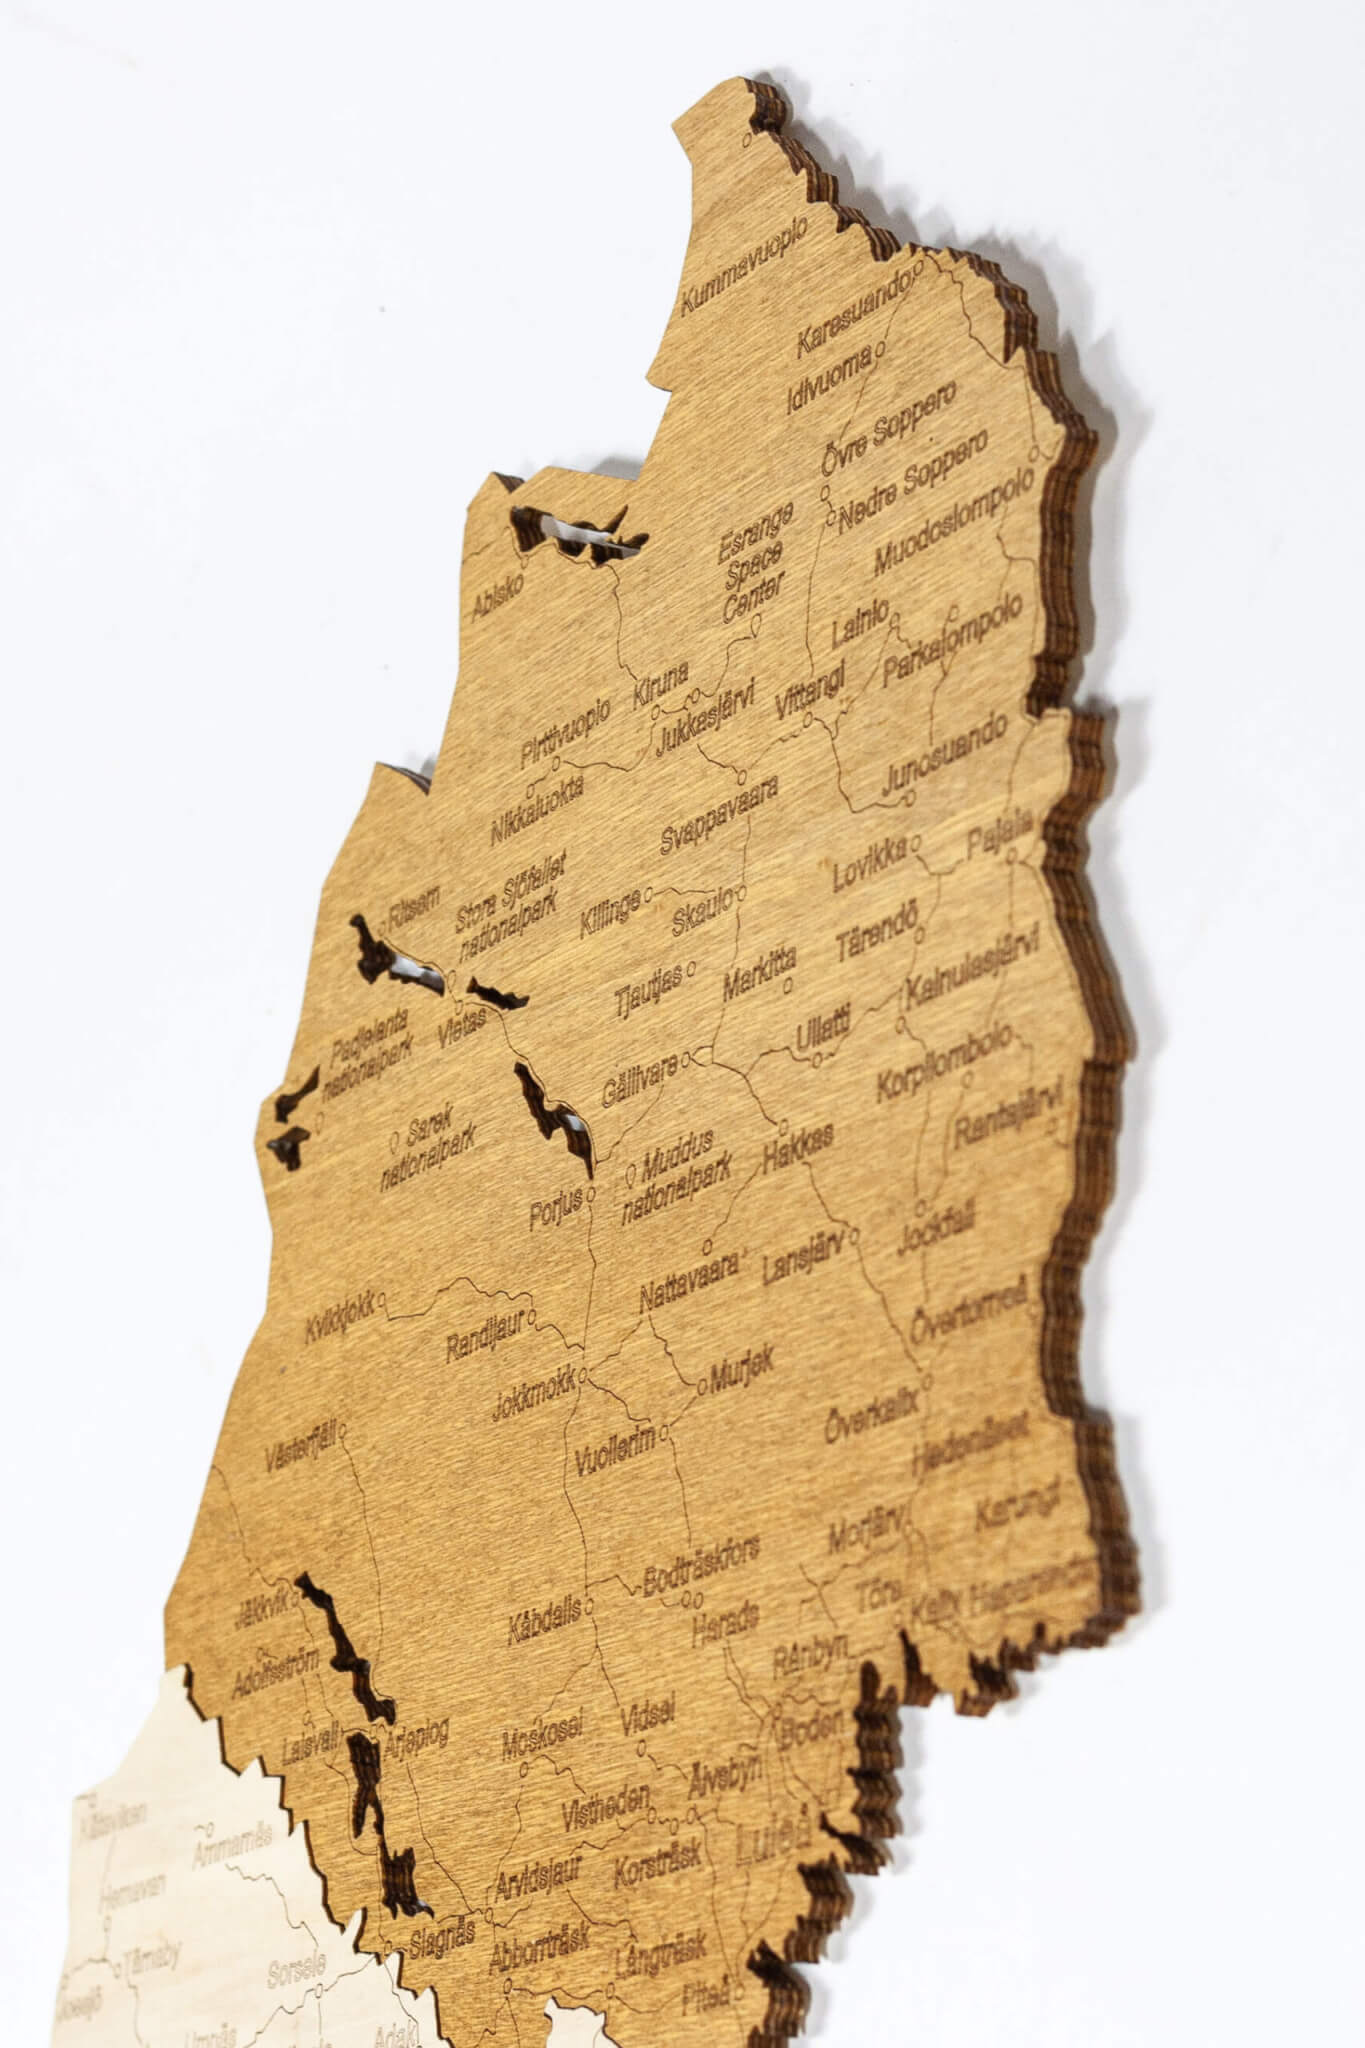 Kummavuopio
Karesuando
Idivuoma
Övre Soppero
Nedre Soppero
Muodoslompolo
Esrange
Space
Center
Abisko
Lainio
Parkalompolo
Kiruna
Vittangi
Jukkasjärvi
Pirttivuopio
Nikkaluokta
Junosuando
Svappavaara
Lovikka
Pajala
Ritsem
Stora Sjöfallet
nationalpark
Killinge
Skaulo
Tärendö
Tjautjas
Markitta
Kainulasjärvi
Padjelanta
nationalpark
Vietas
Ullatti
Gällivare
Korpilombolo
Rantsjärvi
Sarek
nationalpark
Muddus
nationalpark
Hakkas
Porjus
Jockfall
Nattavaara
Lansjärv
Kvikkjokk
Randijaur
Övertorneå
Jokkmokk
Murjek
Överkalix
Västerfjäll
Vuollerim
Hedenäset
Karungi
Morjärv
Bodträskfors
Jäkkvik
Kåbdalis
Harads
Töre
Kalix
Haparanda
Adolfsström
RAnbyn
Laisvall
Arjeplog
Moskosel
Vidsel
Boden
Vistheden
Älvsbyn
Luleå
Arvidsjaur
Korsträsk
Slagnäs
Abborrträsk
Långträsk
Piteå
Ammarnäs
Hemavan
Tärnaby
Sorsele
Umnäs
Adak